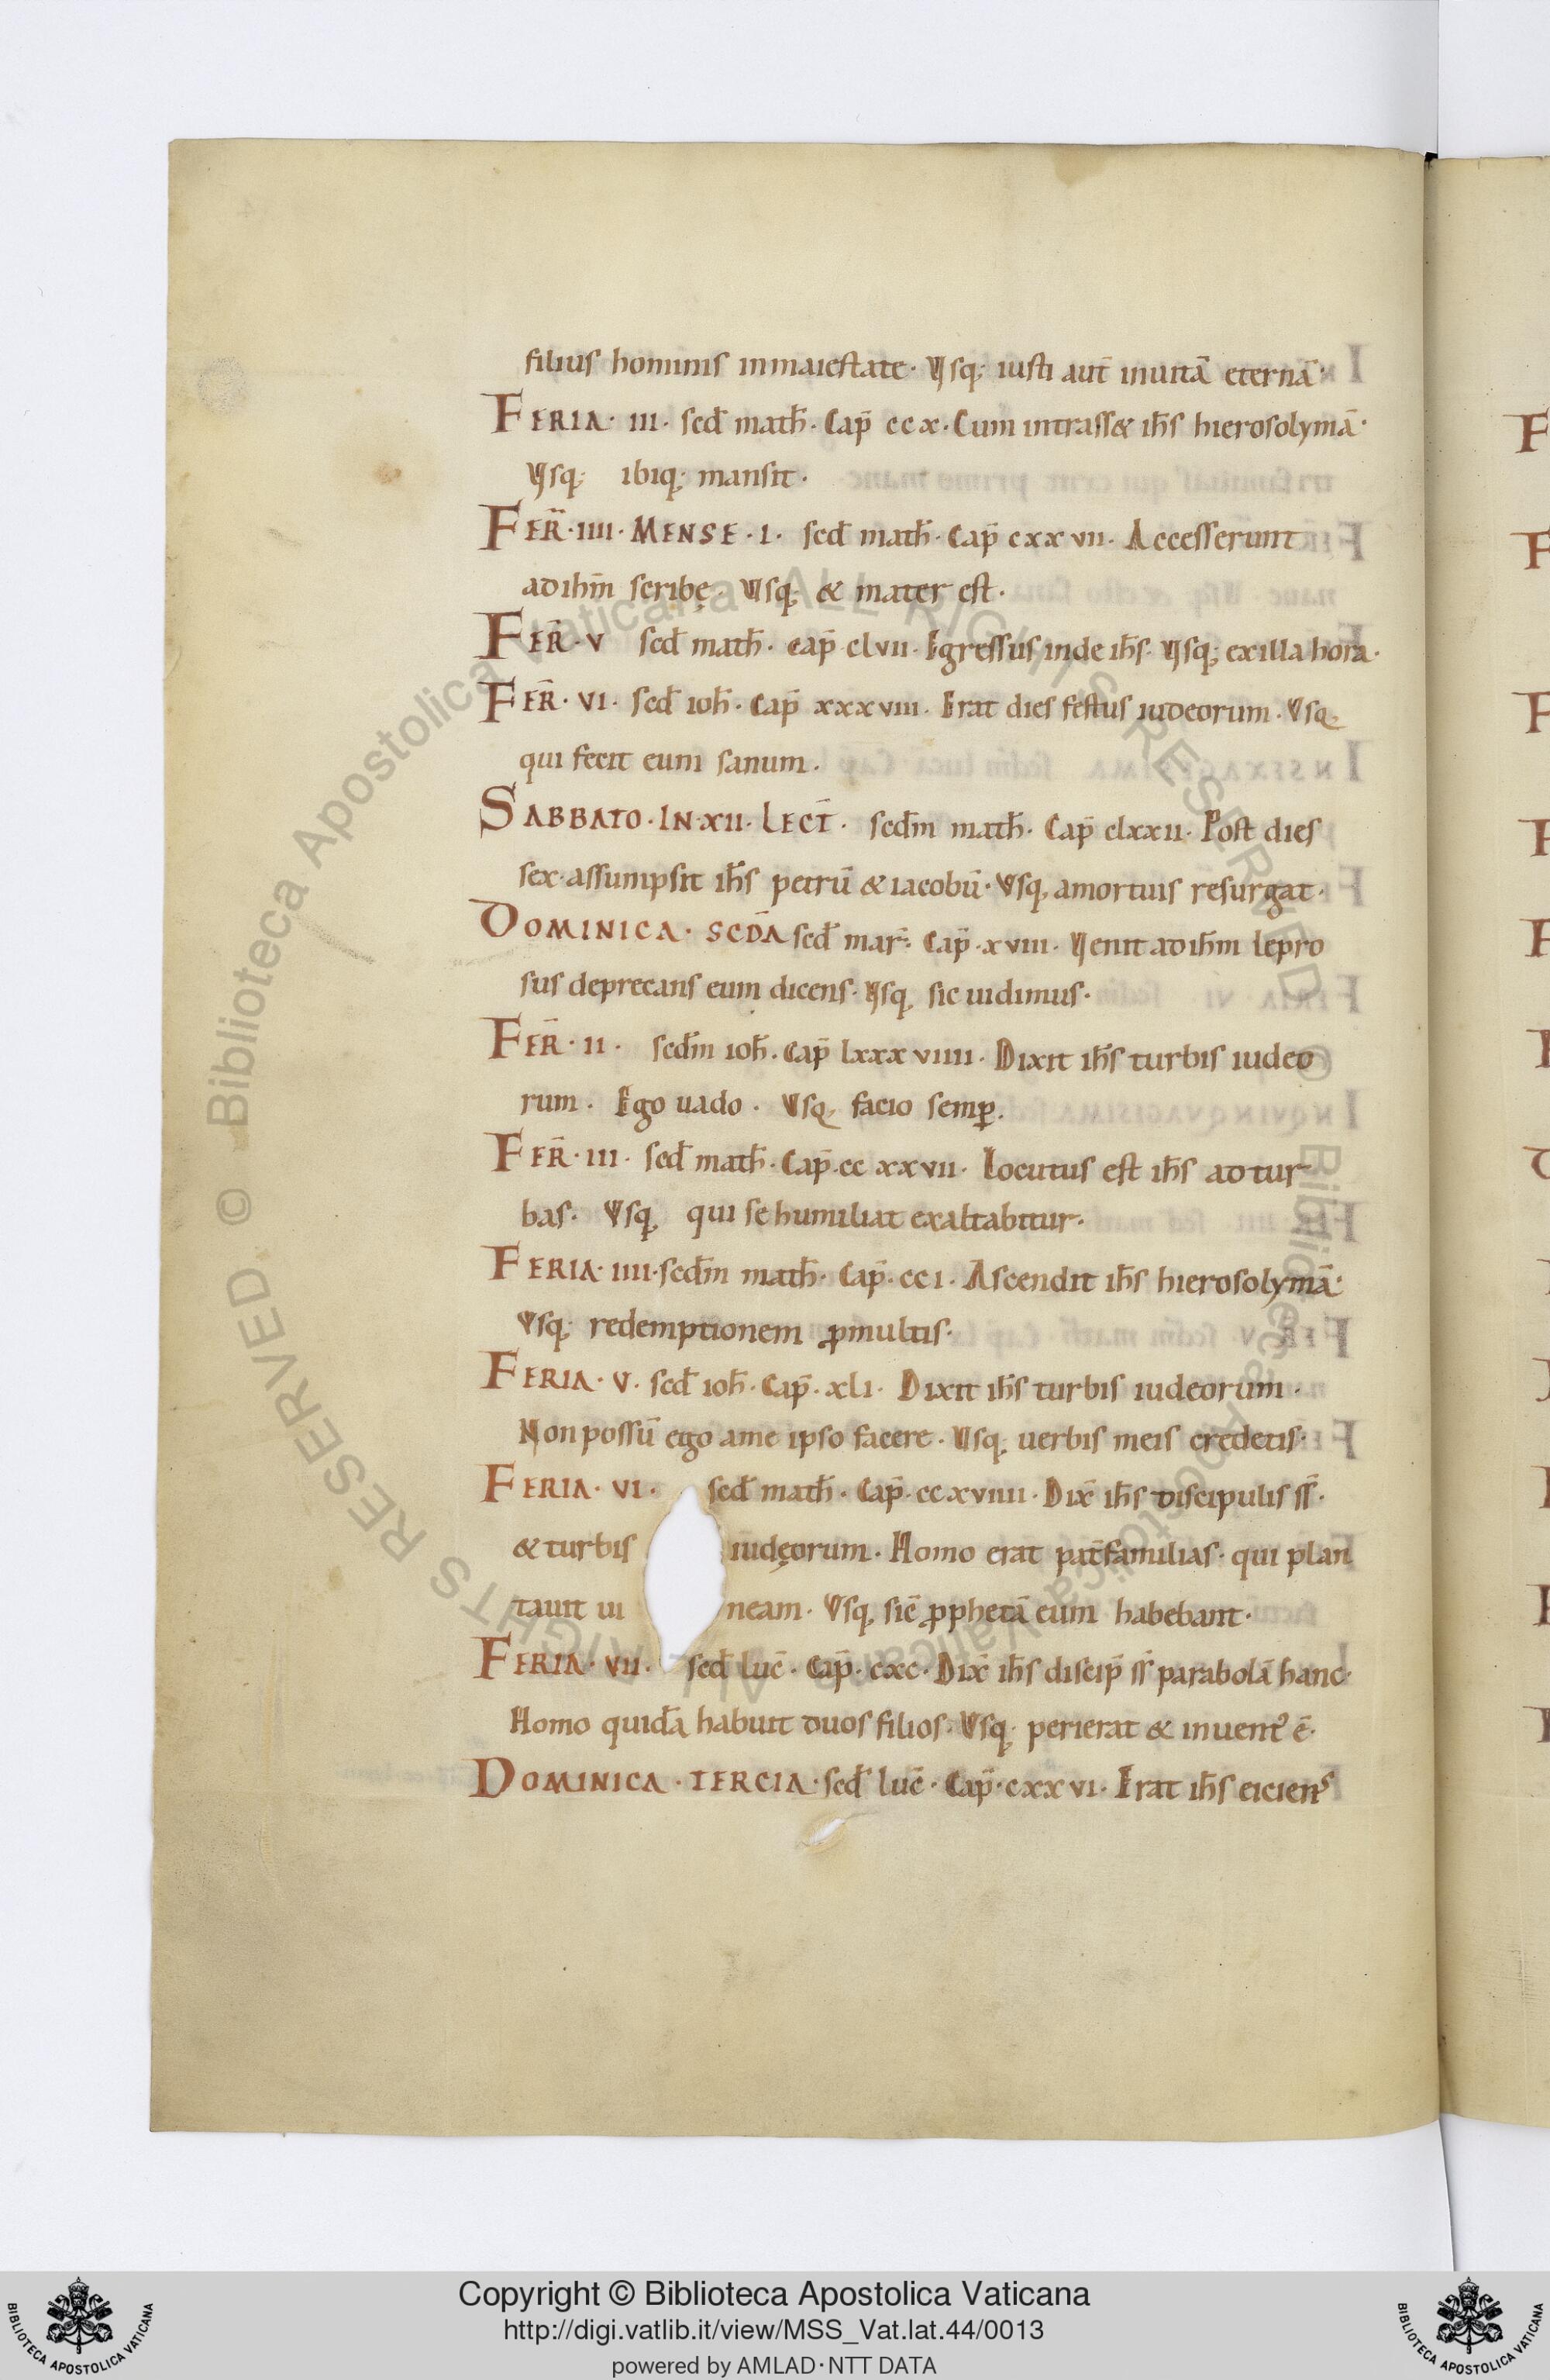 filius hominis inmaiestate · Vsq; iusti aut̄ inuitā eternā ·
FERIA · III · scd̄ math̄ · Cap̄ ccx · Cum intrass& ih̄s hierosolymā ·
Vsq; ibiq; mansit ·
FER̄ · IIII · MENSE · I · scd̄ math̄ · Cap̄ cxxvii · Accesserunt
adih̄m scribę · Vsq; & mater est ·
FER̄ · V scd̄ math̄ · cap̄ · clvii · Egressus inde ih̄s · Vsq; exilla hora ·
FER̄ · VI · scd̄ ioh̄ · Cap̄ xxxviii · Erat dies festus iudeorum · Vsq;
qui fecit eum sanum ·
SABBATO · IN · XII · LECT̄ · scdm̄ math̄ · Cap̄ clxxii · Post dies
sex · assumpsit ih̄s petrū & iacobū · Vsq; amortuis resurgat ·
DOMINICA · SCDĀ scd̄ mar̄ · Cap̄ · xviii · Venit adih̄m lepro
sus deprecans eum dicens · Vsq; sic uidimus ·
FER̄ · II · scdm̄ ioh̄ · Cap̄ lxxxviiii · Dixit ih̄s turbis iudeo
rum · Ego uado · Vsq; facio semꝑ ·
FER̄ · III · scd̄ math̄ · Cap̄ · ccxxvii · Locutus est ih̄s adtur
bas · Vsq; qui se humiliat exaltabitur ·
FERIA · IIII · scdm̄ math̄ · Cap̄ · cci · Ascendit ih̄s hierosolymā ·
Vsq; redemptionem ꝓmultis ·
FERIA · V · scd̄ ioh̄ · Cap̄ · xli · Dixit ih̄s turbis iudeorum ·
Non possū ego ame ipso facere · Vsq; uerbis meis credetis ·
FERIA · VI · scd̄ math̄ · Cap̄ · ccxviiii · Dix̄ ih̄s discipulis ss̄ ·
& turbis iudęorum · Homo erat pat̄familias · qui plan
tauit ui neam · Vsq; sic̄ ꝓphetā eum habebant ·
FERIA · VII · scd̄ luc̄ · Cap̄ · cxc · Dix̄ ih̄s discip̄ ss̄ parabolā hanc ·
Homo quidā habuit duos filios · Vsq; perierat & inuent᾽ ē ·
DOMINICA · TERCIA · scd̄ luc̄ · Cap̄ · cxxvi · Erat ih̄s eiciens
Copyright © Biblioteca Apostolica Vaticana
http://digi.vatlib.it/view/MSS_Vat.lat.44/0013
powered by AMLAD·NTT DATA
BIBLIOTECA APOSTOLICA VATICANA
BIBLIOTECA APOSTOLICA VATICANA